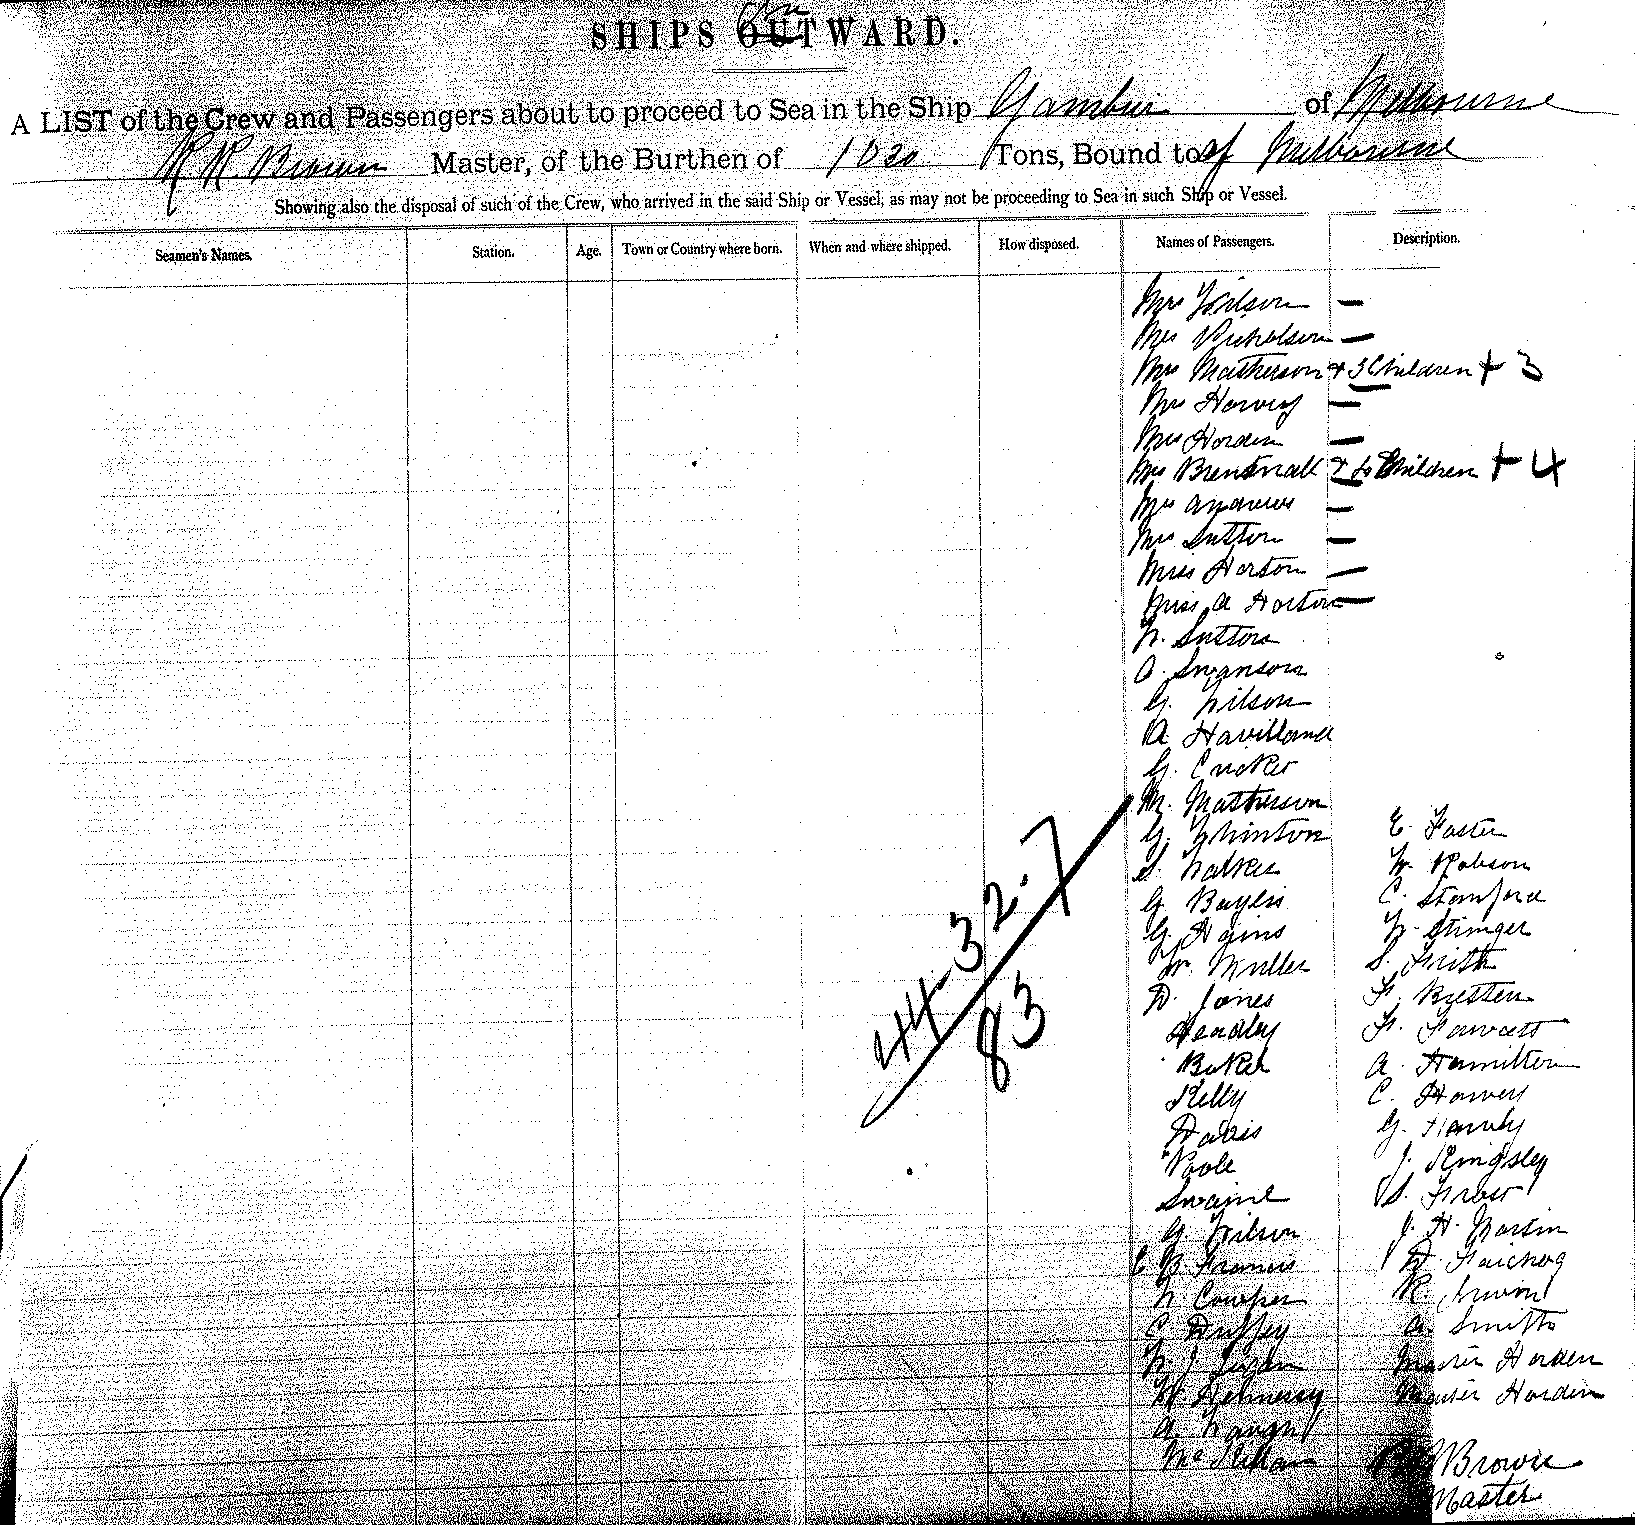 SHIPS OUTWARD.
In
A LIST of the Crew and Passengers about to proceed to Sea in the Ship Gambier of Melbourne
R R Brown Master, of the Burthen of 1030 Tons, Bound to of Melbourne
Showing also the disposal of such of the Crew, who arrived in the said Ship or Vessel, as may not be proceeding to Sea in such Ship or Vessel.
Seamen's Names. Station. Age. Town or Country where born. When and where shipped. How disposed. Names of Passengers. Description.
Mrs Wilson —
Mrs Nicholson —
Mrs Matherson + 3 Children + 3
Mrs Harvey —
Mrs Horden —
Mrs Brentnall + 4 Children + 4
Mrs Andrews —
Mrs Sutton —
Miss Horton —
Miss A Horton —
W. Sutton
A. Swanson
G. Wilson
A. Havilland
G.
M. Matherson
G. E. Foster
S. Walker W. Robson
G. Bayliss C. Stanford
G. Hains W. Stringer
W. Muller S. Frith
D. Jones F.
Headley F. Fawcett
Baker A. Hamilton
Kelly C. Harvey
Davis G. Harvey
Poole J. Kingsley
Swaine S.
G. Wilson J. H. Martin
C B Francis D.
W. Cowper R. Irwin
C. Duffey A. Smith
W. J. Master Horden
M Hennessy Master Horden
A.
Mc
Brown
Master
44 - 32 - 7
83